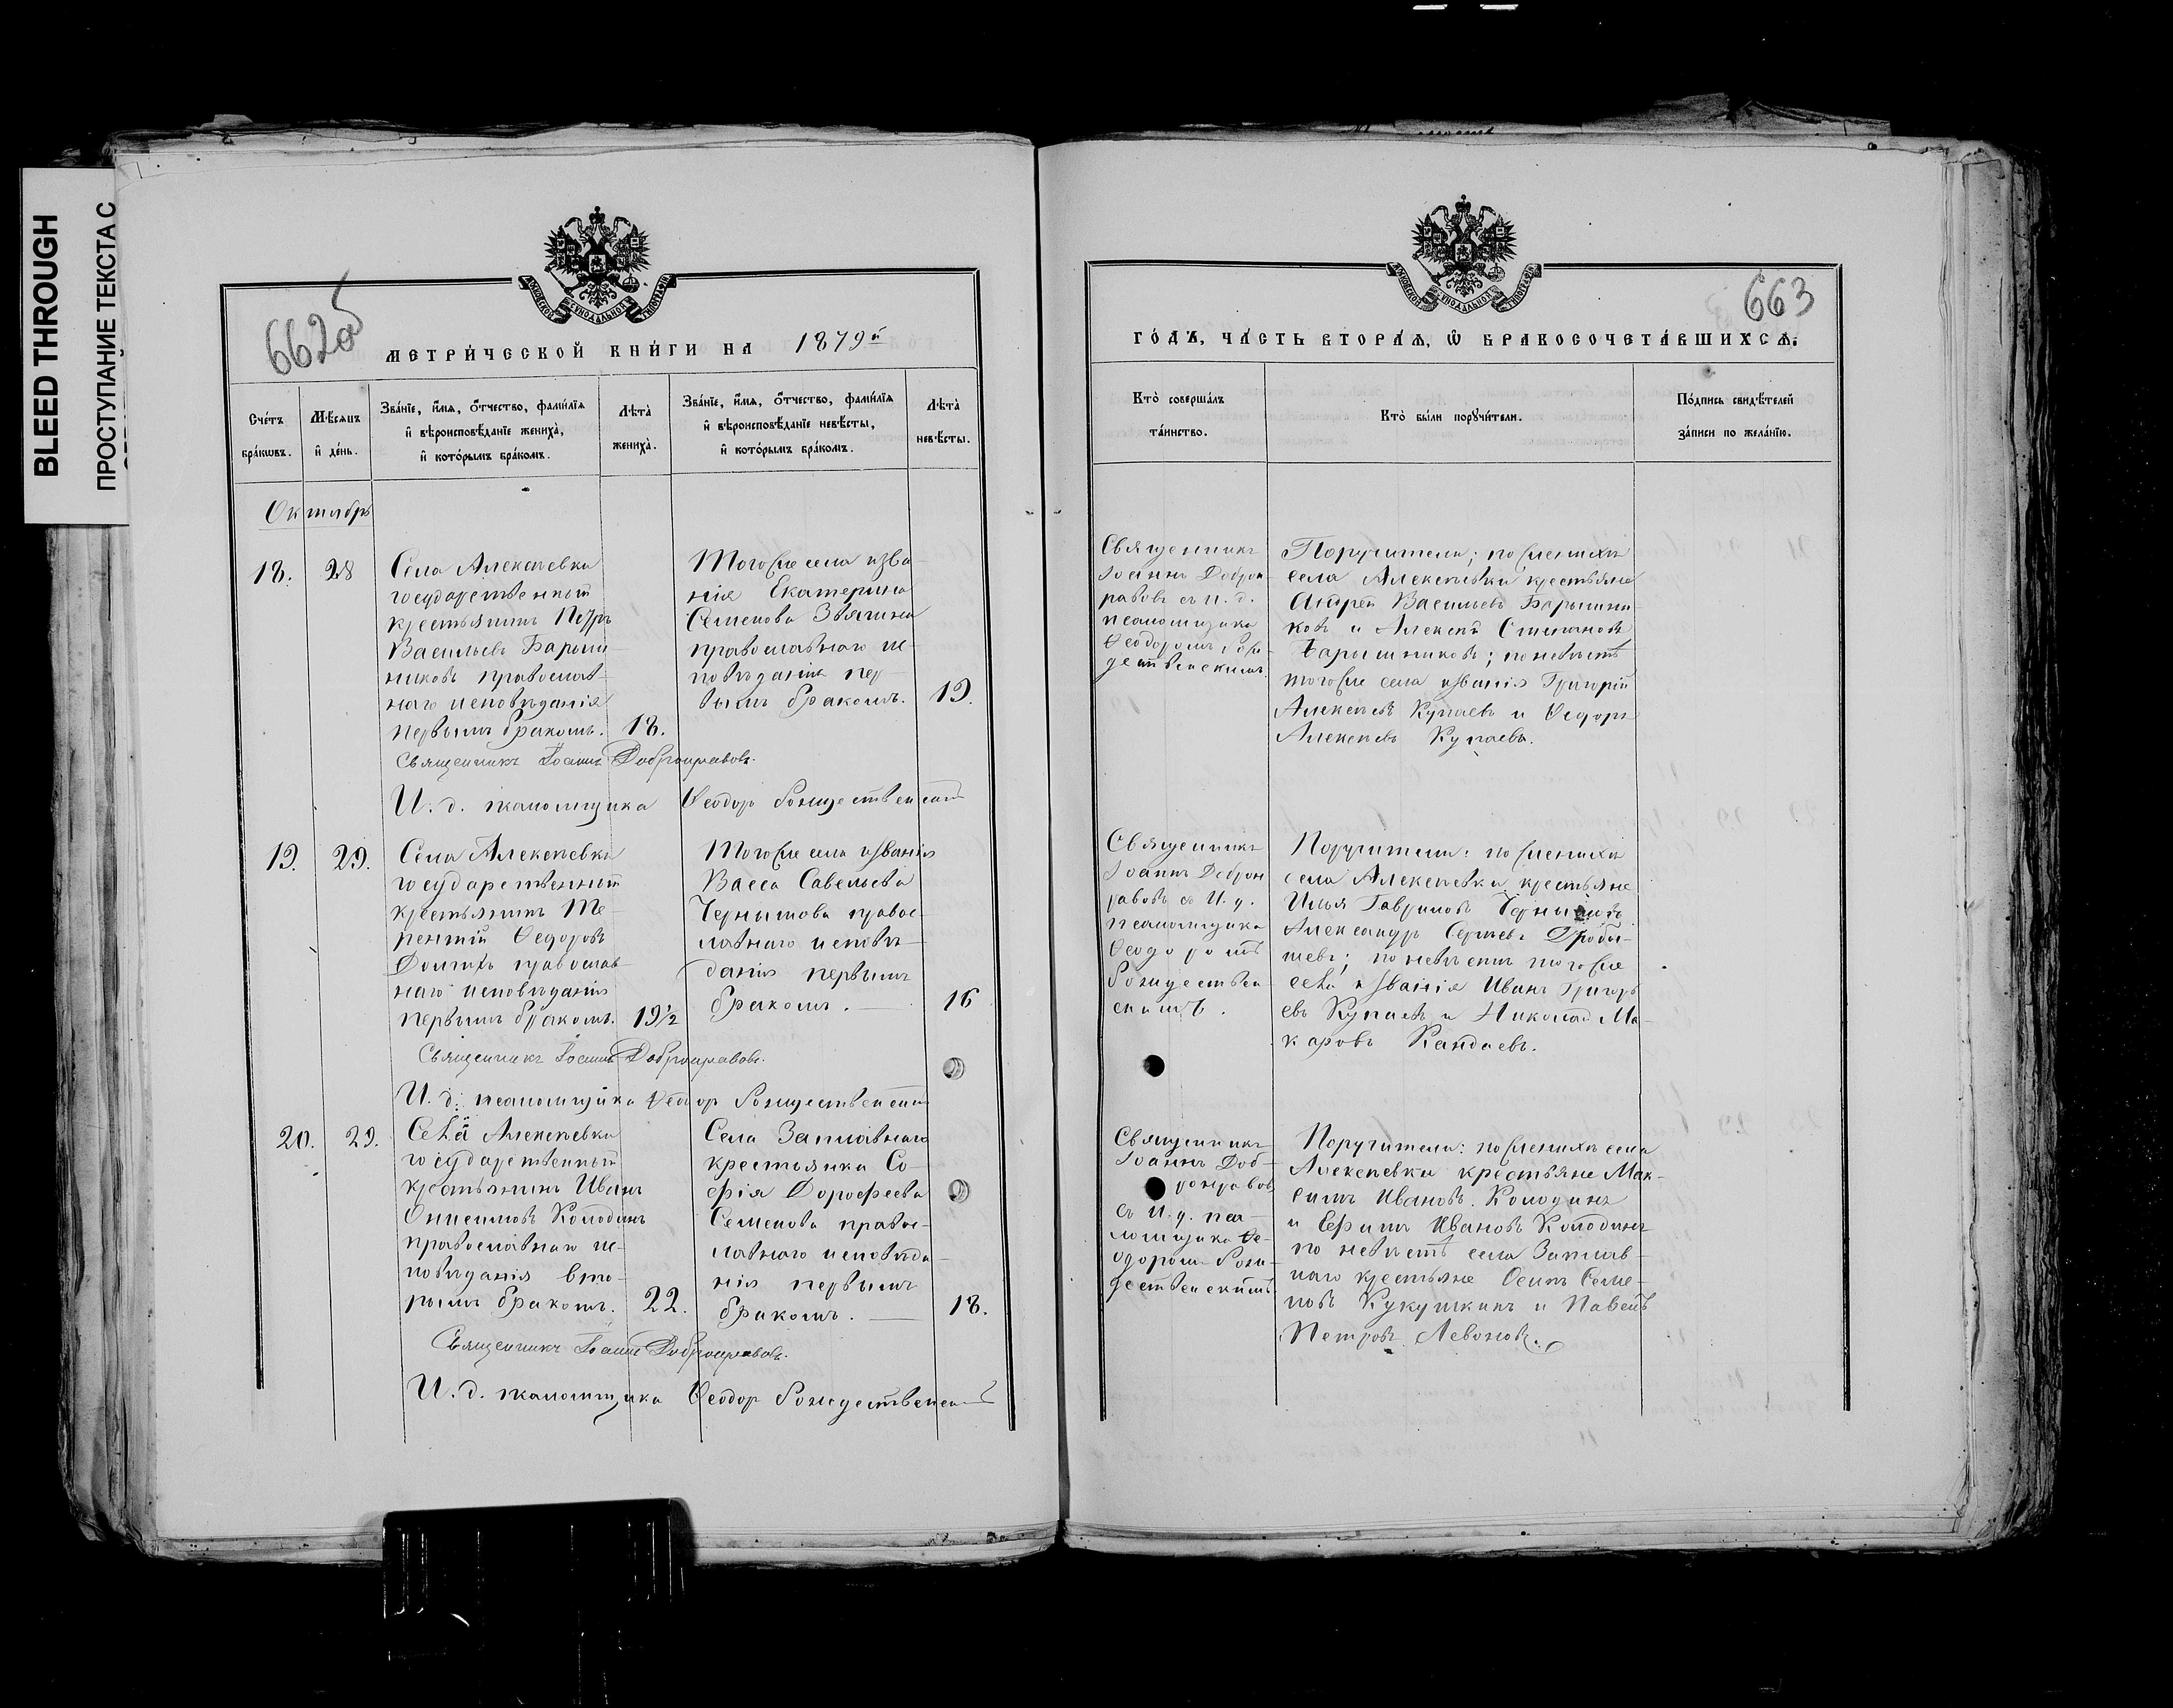 BLEED THROUGH
ПРОСТУПАНИЕ ТЕКСТА С
662об
МЕТРИ́ЧЕСКОЙ КНИ́ГИ НА 1879й
Сче́тъ бра́кѡвъ.
Мѣ́сѧцъ и҆ де́нь.
Зва́нїе, и҆́мѧ, ѻ҆́тчество, фами́лїѧ
и҆ вѣроисповѣ́данїе жениха̀,
и҆ кото́рымъ бра́комъ.
Лѣта̀ жениха̀.
Зва́нїе, и҆́мѧ, ѻ҆́тчество, фами́лїѧ
и҆ вѣроисповѣ́данїе невѣ́сты,
и҆ кото́рымъ бра́комъ.
Лѣта̀ невѣ́сты.
Октябрь
18. 28
Села Алексѣевки
государственный
крестьянинъ Петръ
Васильевъ Барыш-
никовъ православ-
наго исповѣданія
первымъ бракомъ.
18.
Тогоже села и зва-
нія Екатерина
Семенова Звягина
православнаго ис-
повѣданія пер-
вымъ бракомъ.
19.
Священникъ Іоаннъ Добронравовъ.
И. д. псаломщика Ѳеодоръ Рождественскій
19. 29.
Села Алексѣевки
государственный
крестьянинъ Те-
рентій Ѳедоровъ
Долгихъ православ-
наго исповѣданія
первымъ бракомъ.
19½
Тогоже села и званія
Васса Савельева
Чернышова правос-
лавнаго исповѣ-
данія первымъ
бракомъ.
16
Священникъ Іоаннъ Добронравовъ.
И. д. псаломщика Ѳеодоръ Рождественскій
20. 29.
Села Алексѣевки
государственный
крестьянинъ Иванъ
Онисимовъ Колодинъ
православнаго ис-
повѣданія вто-
рымъ бракомъ.
22.
Села Заплавнаго
крестьянка Со-
фія Дорофеева
Семенова правос-
лавнаго исповѣда-
нія первымъ
бракомъ.
18.
Священникъ Іоаннъ Добронравовъ.
И. д. псаломщика Ѳеодоръ Рождественскій
663
ГО́ДЪ, ЧА́СТЬ ВТОРА́Ѧ, Ѽ БРАКОСОЧЕТА́ВШИХСѦ.
Кто̀ соверша́лъ
та́инство.
Кто̀ бы́ли порꙋчи́тели.
По́дпись свидѣ́телей
за́писи по жела́нїю.
Священникъ
Іоаннъ Доброн-
равовъ съ и. д.
псаломщика
Ѳеодоромъ Рож-
дественскимъ.
Поручители; по женихѣ
села Алексѣевки крестьяне
Андрей Васильевъ Барышни-
ковъ и Алексѣй Степановъ
Барышниковъ; по невѣстѣ
тогоже села и званія Григорій
Алексѣевъ Купаевъ и Ѳедоръ
Алексѣевъ Купаевъ.
Священникъ
Іоаннъ Доброн
равовъ съ И. д.
псаломщика
Ѳеодоромъ
Рождествен
скимъ.
Поручители: по женихѣ
села Алексѣевки крестьяне
Илья Гавриловъ Чернышовъ
Александръ Сергѣевъ Дробы-
шевъ; по невѣстѣ тогоже
села и званія Иванъ Григорь
евъ Купаевъ и Николай Ма-
каровъ Кандаевъ.
Священникъ
Іоаннъ Доб-
ронравовъ
съ И. д. пса-
ломщика Ѳе-
одоромъ Рож-
дественскимъ.
Поручители: по женихѣ села
Алексѣевки крестьяне Мак-
симъ Ивановъ Колодинъ
и Ефимъ Ивановъ Колодинъ
по невѣстѣ села Заплав-
наго крестьяне Осипъ Семе-
новъ Кукушкинъ и Павелъ
Петровъ Левоновъ.